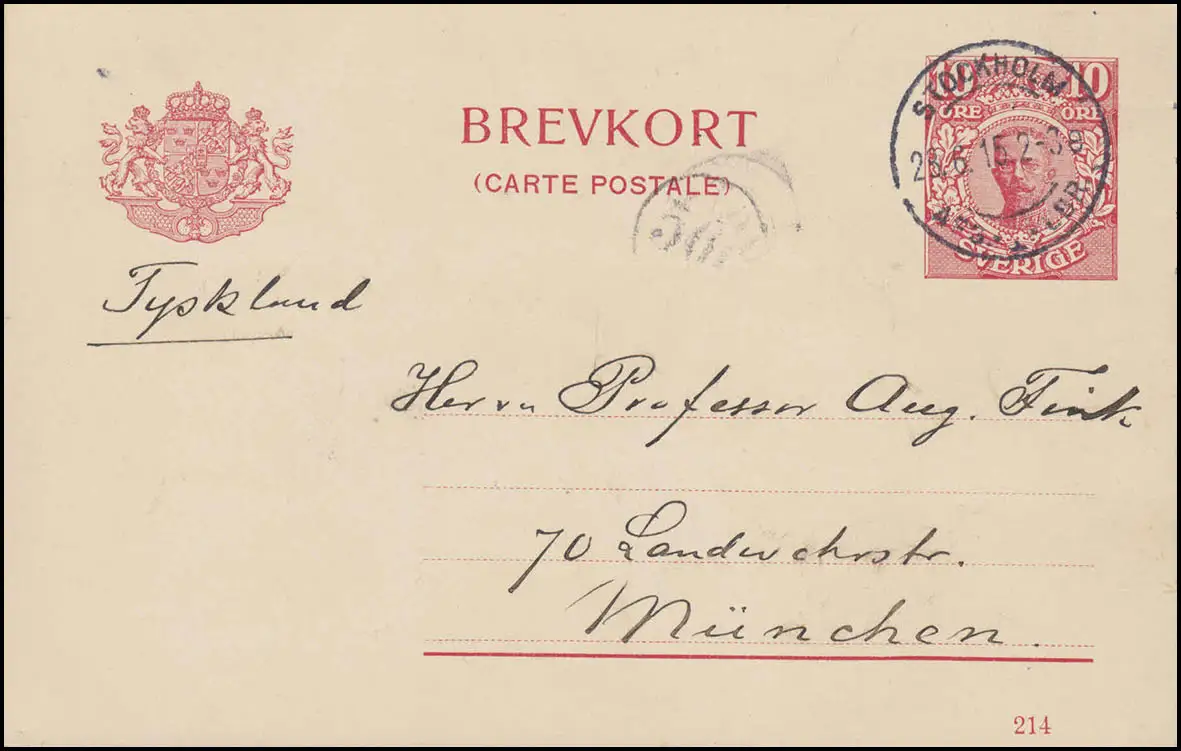 BREVKORT
(CARTE POSTALE)
10 10
ÖRE ÖRE
SVERIGE
STOCKHOLM
Tyskland
Herrn Professor Aug. Fink
70 Landwehrstr.
München.
214